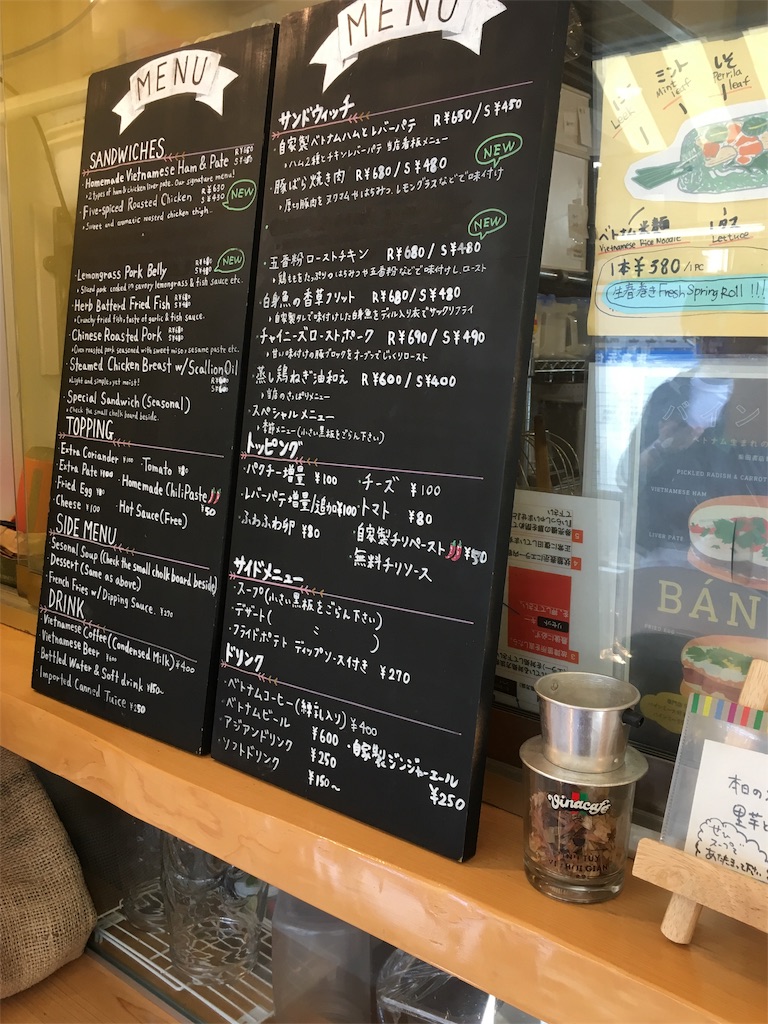 MENU
SANDWICHES
・Homemade Vietnamese Ham & Pate
・2 types of ham & chicken liver pate. Our signature menu!
・Five-spiced Roasted Chicken R¥680 S¥480
NEW
・Sweet and aromatic roasted chicken thigh...
・Lemongrass Pork Belly
NEW
・Sliced pork cooked in savory lemongrass & fish sauce etc.
・Herb Batterd Fried Fish
・Crunchy fried fish, taste of garlic & fish sauce.
・Chinese Roasted Pork
・Oven roasted pork seasoned with sweet miso, sesame paste etc.
・Steamed Chicken Breast w/Scallion Oil
・Light and simple, yet moist!
・Special Sandwich (Seasonal)
・Check the small chalk board beside.
TOPPING
・Extra Coriander ¥100 ・Tomato ¥80
・Extra Pate ¥100 ・Homemade Chili Paste ¥50
・Fried Egg ¥80
・Cheese ¥100 ・Hot Sauce (Free)
SIDE MENU
・Sesonal Soup (Check the small chalk board beside)
・Dessert (Same as above)
・French Fries w/Dipping Sauce. ¥270
DRINK
・Vietnamese Coffee (Condensed Milk) ¥400
・Vietnamese Beer ¥600
・Bottled Water & Soft drink ¥150~
・Imported Canned Juice ¥250
MENU
サンドウィッチ
・自家製ベトナムハムとレバーパテ R¥650/S¥450
・ハム2種とチキンレバーパテ 当店看板メニュー
・豚ばら焼き肉 R¥680/S¥480
NEW
・厚切り豚肉をヌクマムやはちみつ、レモングラスなどで味付け
NEW
・五香粉ローストチキン R¥680/S¥480
・鶏ももをたっぷりのはちみつや五香粉などで味付けし、ロースト
・白身魚の香草フリット R¥680/S¥480
・自家製タレで味付けした白身魚をディル入り衣でサックリフライ
・チャイニーズローストポーク R¥690/S¥490
・甘い味付けの豚ブロックをオーブンでじっくりロースト
・蒸し鶏ねぎ油和え R¥600/S¥400
・当店のさっぱりメニュー
・スペシャルメニュー
・季節メニュー(小さい黒板をごらん下さい)
トッピング
・パクチー増量 ¥100 ・チーズ ¥100
・レバーパテ増量/追加¥100 ・トマト ¥80
・ふわふわ卵 ¥80 ・自家製チリペースト ¥50
・無料チリソース
サイドメニュー
・スープ(小さい黒板をごらん下さい)
・デザート( 〃 )
・フライドポテト ディップソース付き ¥270
ドリンク
・ベトナムコーヒー(練乳入り) ¥400
・ベトナムビール ¥600
・アジアンドリンク ¥250
・自家製ジンジャーエール ¥250
・ソフトドリンク ¥150~
ニラ
Leek
ミント
Mint leaf
しそ
Perrila leaf
ベトナム米麺
Vietnamese Rice Noodle
レタス
Lettuce
1本¥380/1PC
生春巻き Fresh Spring Roll!!!
PICKLED RADISH & CARROT
VIETNAMESE HAM
LIVER PATE
BÁN
vinacafé